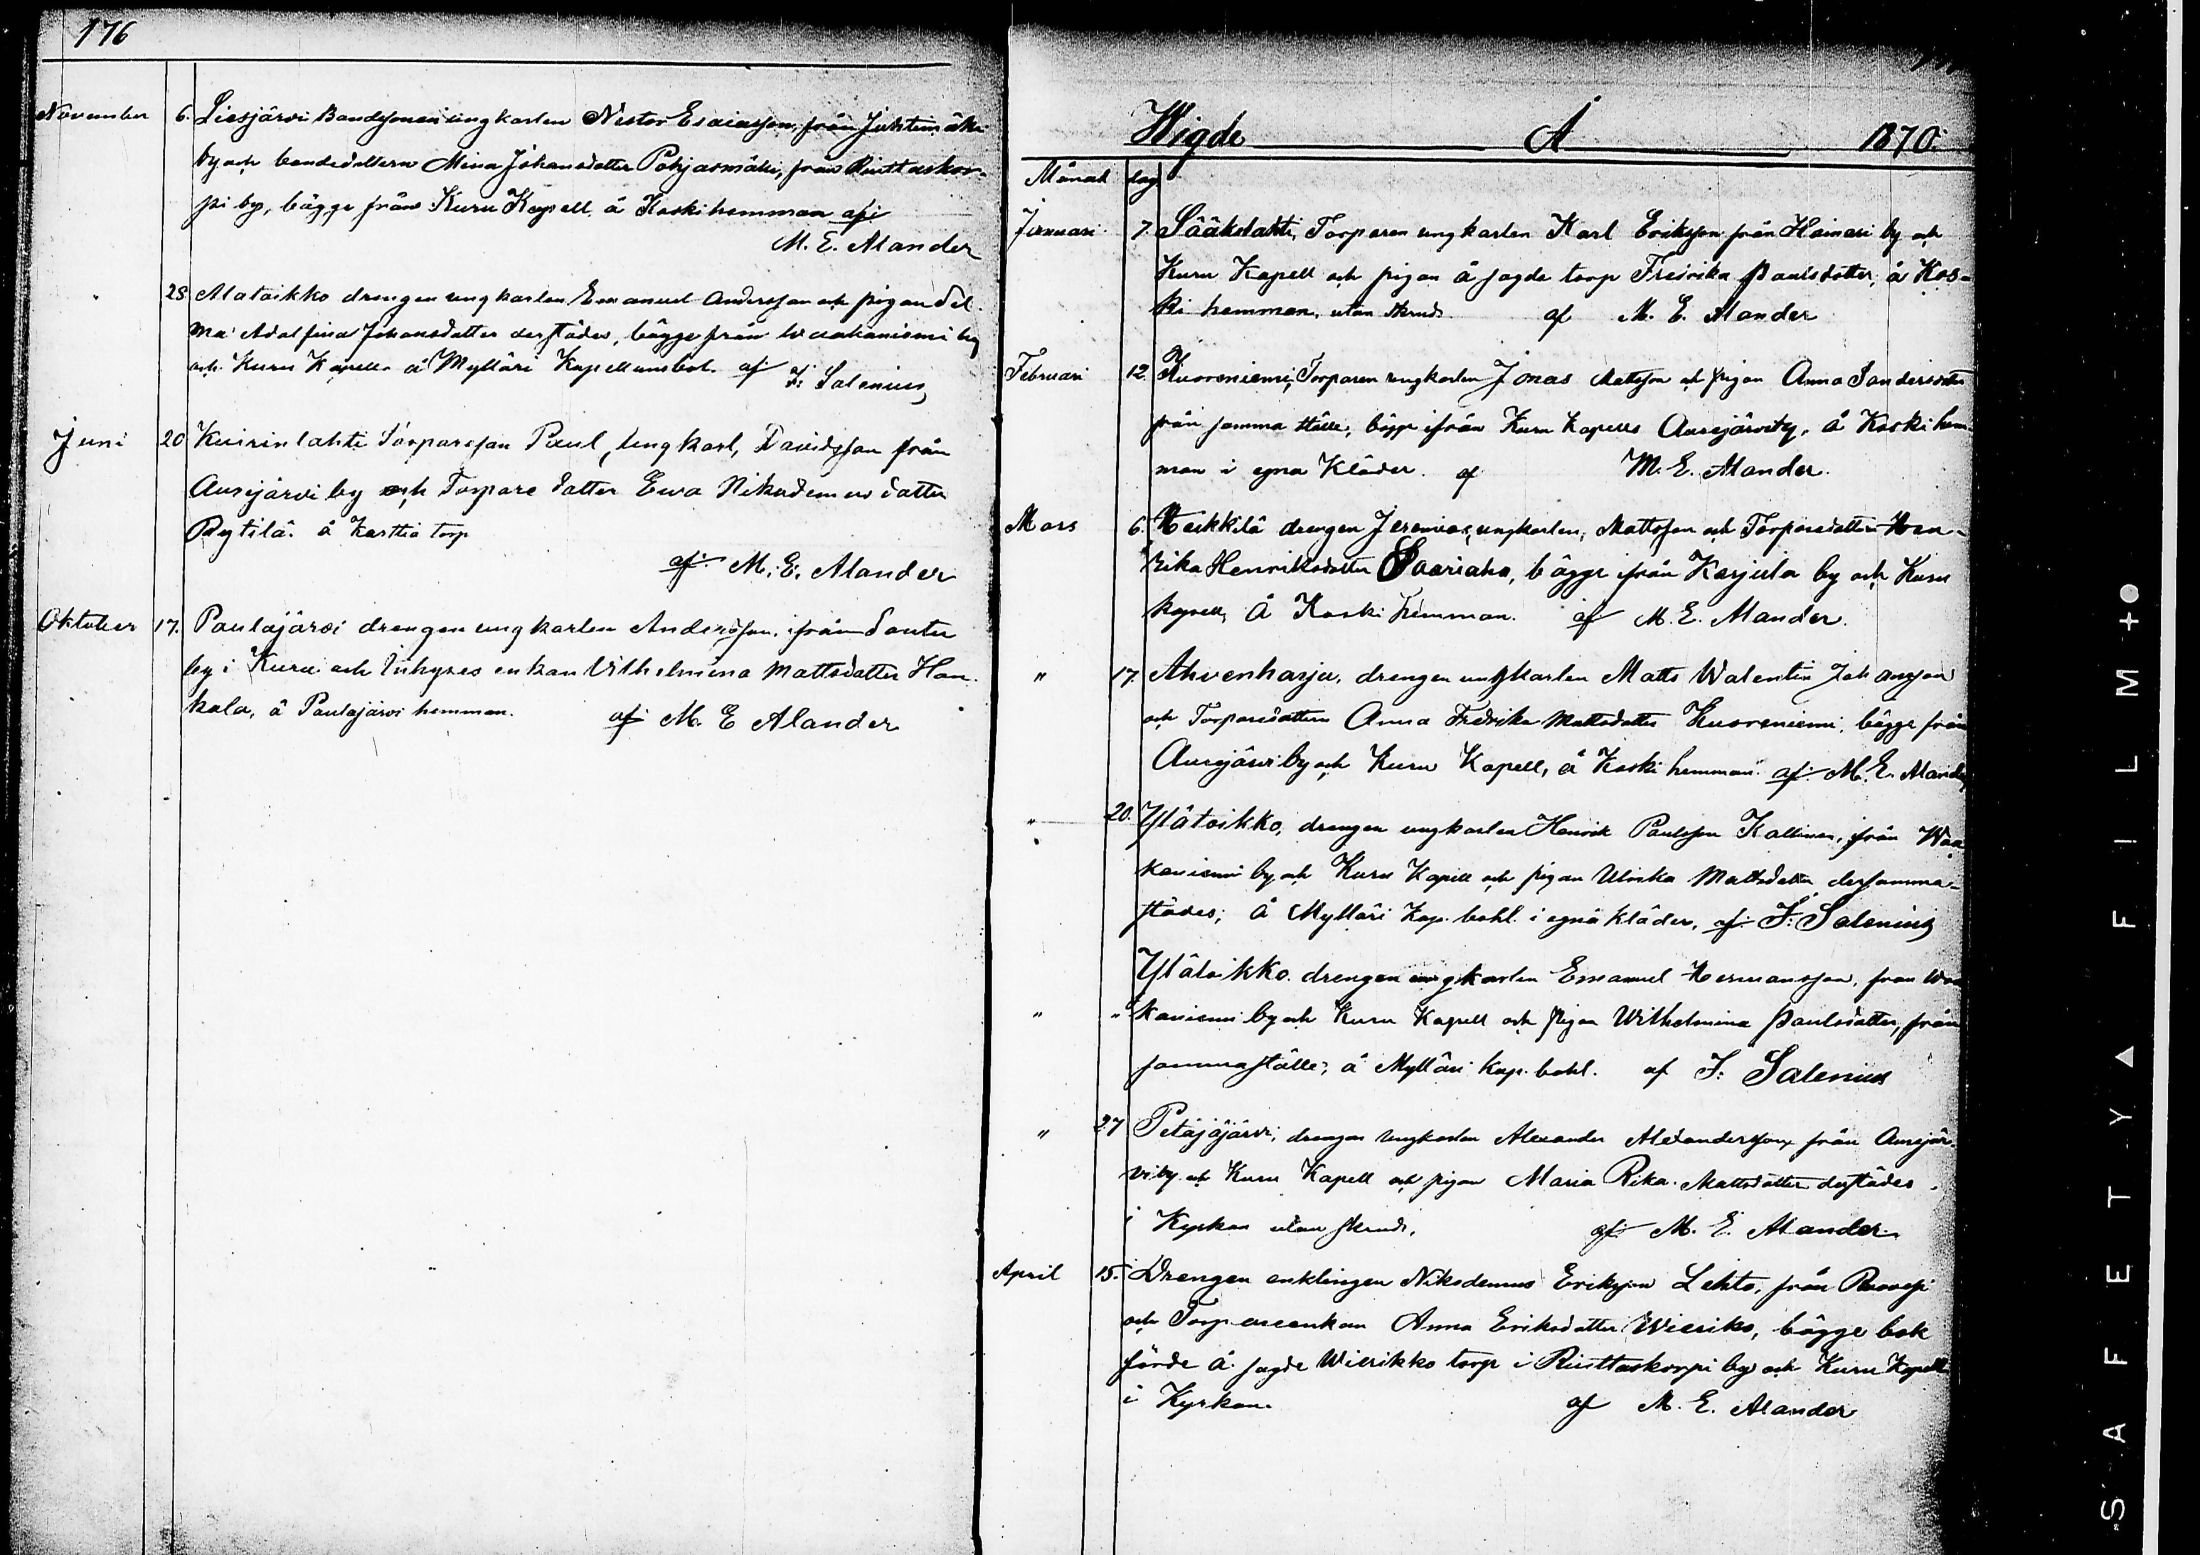 176
November 6. Liesjärvi Bondesonen ungkarlen Nestor Esaiasson, från Juhtimäki
by och bondedottern Mina Johansdotter Pohjasmäki, från Riuttaskor-
pi by, bägge från Kuru Kapell, å Koski hemman af:
M. E. Alander
" 28 Alataikko drengen ungkarlen Emanuel Andersson och pigan Sel-
ma Adolfina Johansdotter derstädes, bägge från Waakaniemi by
och Kuru Kapell å Mylläri Kapellansbol. af F. Salenius
Juni 20 Kuirinlahti Torparsson Paul, Ungkarl, Davidsson från
Aurejärvi by och Torpare dotter Ewa Nikodemus dotter
Rytilä. å Karttia torp
af. M. E. Alander
Oktober 17. Paulajärvi drengen ungkarlen Andersson, ifrån
by i Kuru och enkan Vilhelmina Mattsdotter Han-
kala, å Paulajärvi hemman. af M. E Alander
Wigde År 1870.
Månad dag
Januari 7. Sääkslahti, Torparen ungkarlen Karl Eriksson från Hainari by och
Kuru Kapell och pigan å sagde torp Fredrika Paulsdotter, å Kos-
ki hemman, utan skrud. af M. E. Alander
Februari 12 Kuoreniemi, Torparen ungkarlen Jonas Mattsson och pigan Anna Sandersdotter
från samma ställe, bägge ifrån Kuru Kapells Aurejärvi by, å Koski hem-
man i egna Kläder. af M. E. Alander.
Mars 6. Heikkilä drengen Jeremias, ungkarlen, Mattsson och Torparedottern Hen-
rika Henriksdotter Saariaho, bägge ifrån Karjula by och Kuru
kapell, å Koski hemman. af M. E. Alander.
" 17. Ahvenharju, drengen ungkarlen Matts Walentin Johansson
och Torparedottern Anna Fredrika Mattsdotter Kuoreniemi, bägge från
Aurejärvi by och Kuru Kapell, å Koski hemman. af. M. E. Alander
" 20. Ylätoikko, drengen ungkarlen Henrik Paulsson Kallinen, från Waa-
kaniemi by och Kuru Kapell och pigan Ulrika Mattsdotter dersamma-
städes, å Mylläri Kap. bohl. i egna kläder, af. F. Salenius
Ylätoikko. drengen ungkarlen Emanuel Hermansson, från Waa-
" " kaniemi by och Kuru Kapell och pigan Wilhelmina Paulsdotter, från
samma ställe, å Mylläri Kap. bohl. af F. Salenius
" 27 Petäjäjärvi, drengen Ungkarlen Alexander Alexandersson, från Aurejär-
vi by och Kuru Kapell och pigan Maria Rika Mattsdotter derstädes.
i Kyrkan utan skrud. af. M. E. Alander.
April 15. Drengen enklingen Nikodemus Eriksson Lehto, från Ruovesi
och Torpareenkan Anna Eriksdotter Wieriko, bägge bok
förde å sagde Wierikko torp i Riuttaskorpi by och Kuru Kapell
i Kyrkan. af M. E. Alander
SAFETY▲FILM